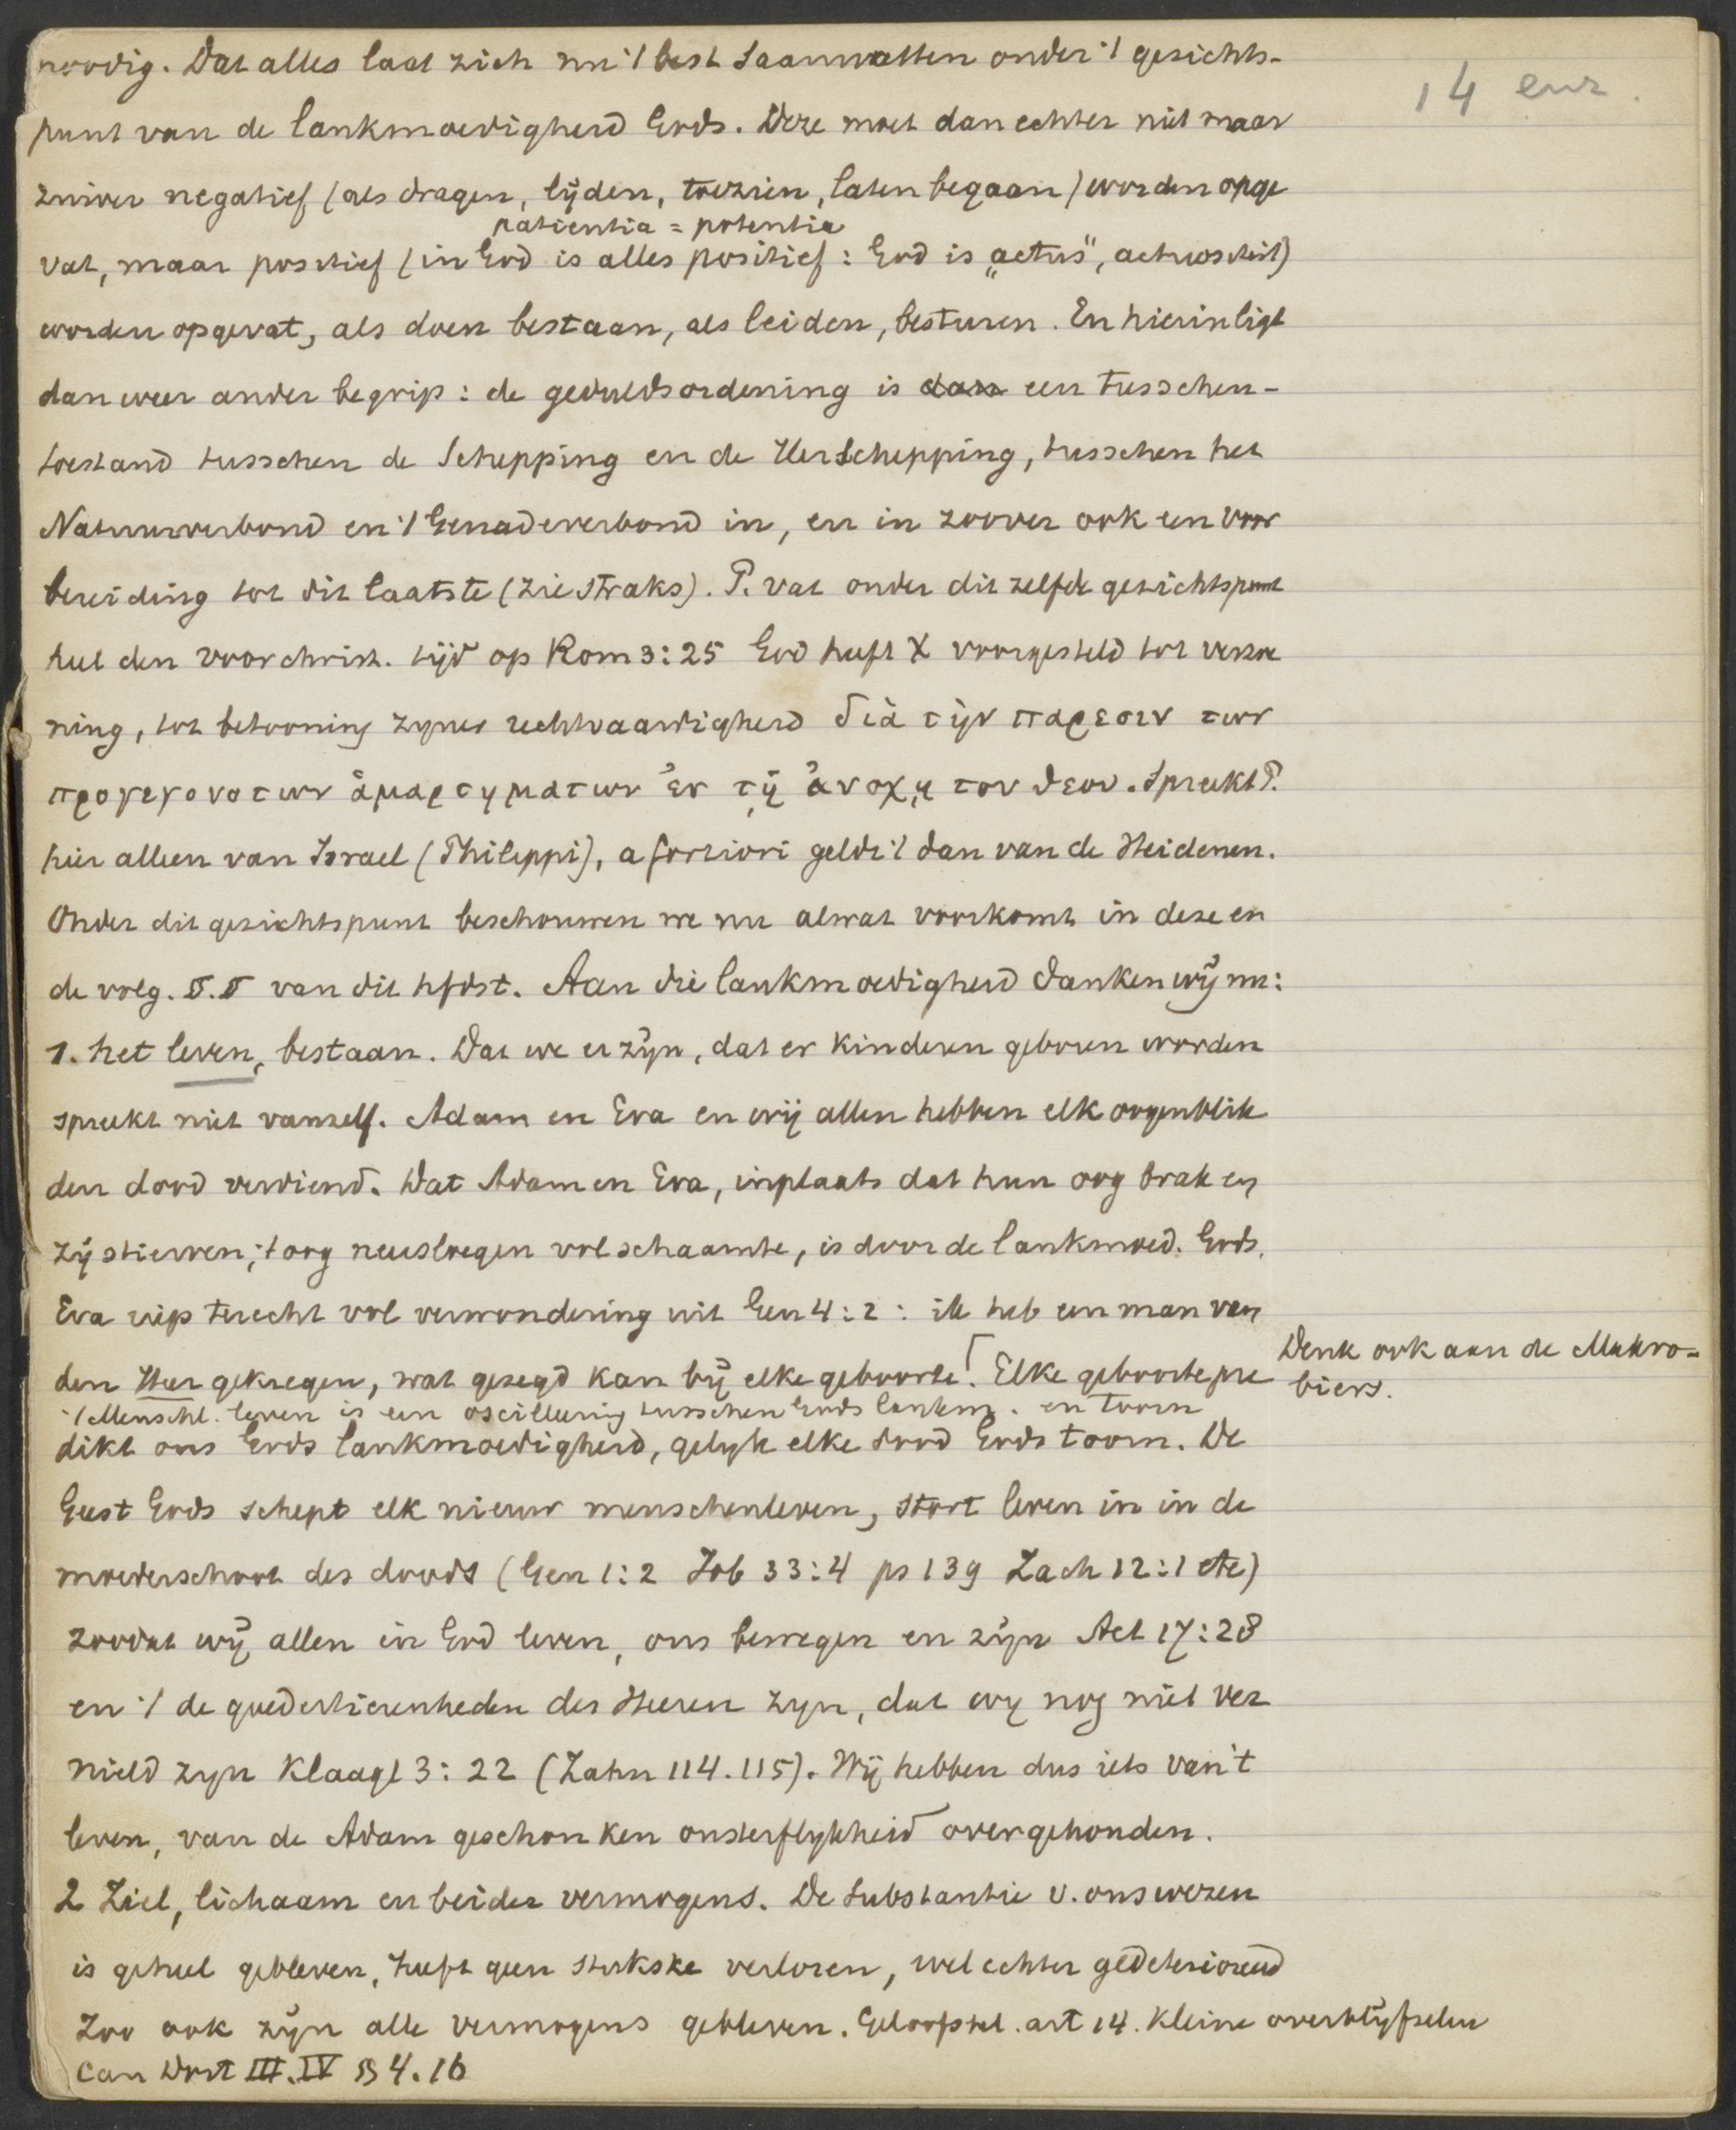 noodig. Dat alles laat zich nu 't best saamvatten onder 't gezichts-
14 eur.
punt van de lankmoedigheid Gods. Deze moet dan echter niet maar
zuiver negatief (als dragen, lijden, toezien, laten begaan) worden opge
patientia = potentia
vat, maar positief (in God is alles positief: God is „actus", actuositeit)
worden opgevat, als doen bestaan, als leiden, besturen. En hierin ligt
dan weer ander begrip: de geduldsordening is dan een tusschen-
toestand tusschen de Schepping en de Herschepping, tusschen het
Natuurverbond en 't Genadeverbond in, en in zoover ook een voor
bereiding tot dit laatste (zie straks). P. vat onder dit zelfde gezichtspunt
heel den voorchrist. tijd op Rom 3:25 God heeft X voorgesteld tot verzoe
ning, tot betooning zyner rechtvaardigheid διὰ τὴν παρεσιν των
προγεγονοτων ἁμαρτηματων ἐν τῇ ἀνοχῃ του θεου. Spreekt P.
hier alleen van Israel (Philippi), a fortiori geldt 't dan van de Heidenen.
Onder dit gezichtspunt beschouwen we nu alwat voorkomt in deze en
de volg. §.§ van dit hfdst. Aan die lankmoedigheid danken wij nu:
1. het leven, bestaan. Dat we er zijn, dat er kinderen geboren worden
spreekt niet vanzelf. Adam en Eva en wij allen hebben elk oogenblik
den dood verdiend. Dat Adam en Eva, inplaats dat hun oog brak en
zij stierven, 't oog neusloegen vol schaamte, is door de lankmoed. Gods.
Eva riep terecht vol verwondering uit Gen 4:2: ik heb een man van
den Heer gekregen, wat gezegd kan bij elke geboorte! ⌈Elke geboorte pre
Denk ook aan de Makro-
biers.
't Menschl. leven is een oscilleering tusschen Gods lankm. en toorn
dikt ons Gods lankmoedigheid, gelyk elke dood Gods toorn. De
Geest Gods schept elk nieuw menschenleven, stort leven in in de
moederschoot des doods (Gen 1:2 Job 33:4 ps 139 Zach 12:1 etc)
zoodat wij allen in God leven, ons bewegen en zijn Act 17:28
en 't de goedertierenheden des Heeren zyn, dat wy nog niet ver
nield zyn Klaagl 3:22 (Zahn 114.115). Wij hebben dus iets van 't
leven, van de Adam geschonken onsterflykheid overgehouden.
2 Ziel, lichaam en beider vermogens. De substantie v. ons wezen
is geheel gebleven, heeft geen stukske verloren, wel echter gedeterioreerd
Zoo ook zijn alle vermogens gebleven. Geloofsbel. art 14. Kleine overblijfselen
Can Dort III.IV § 4.16